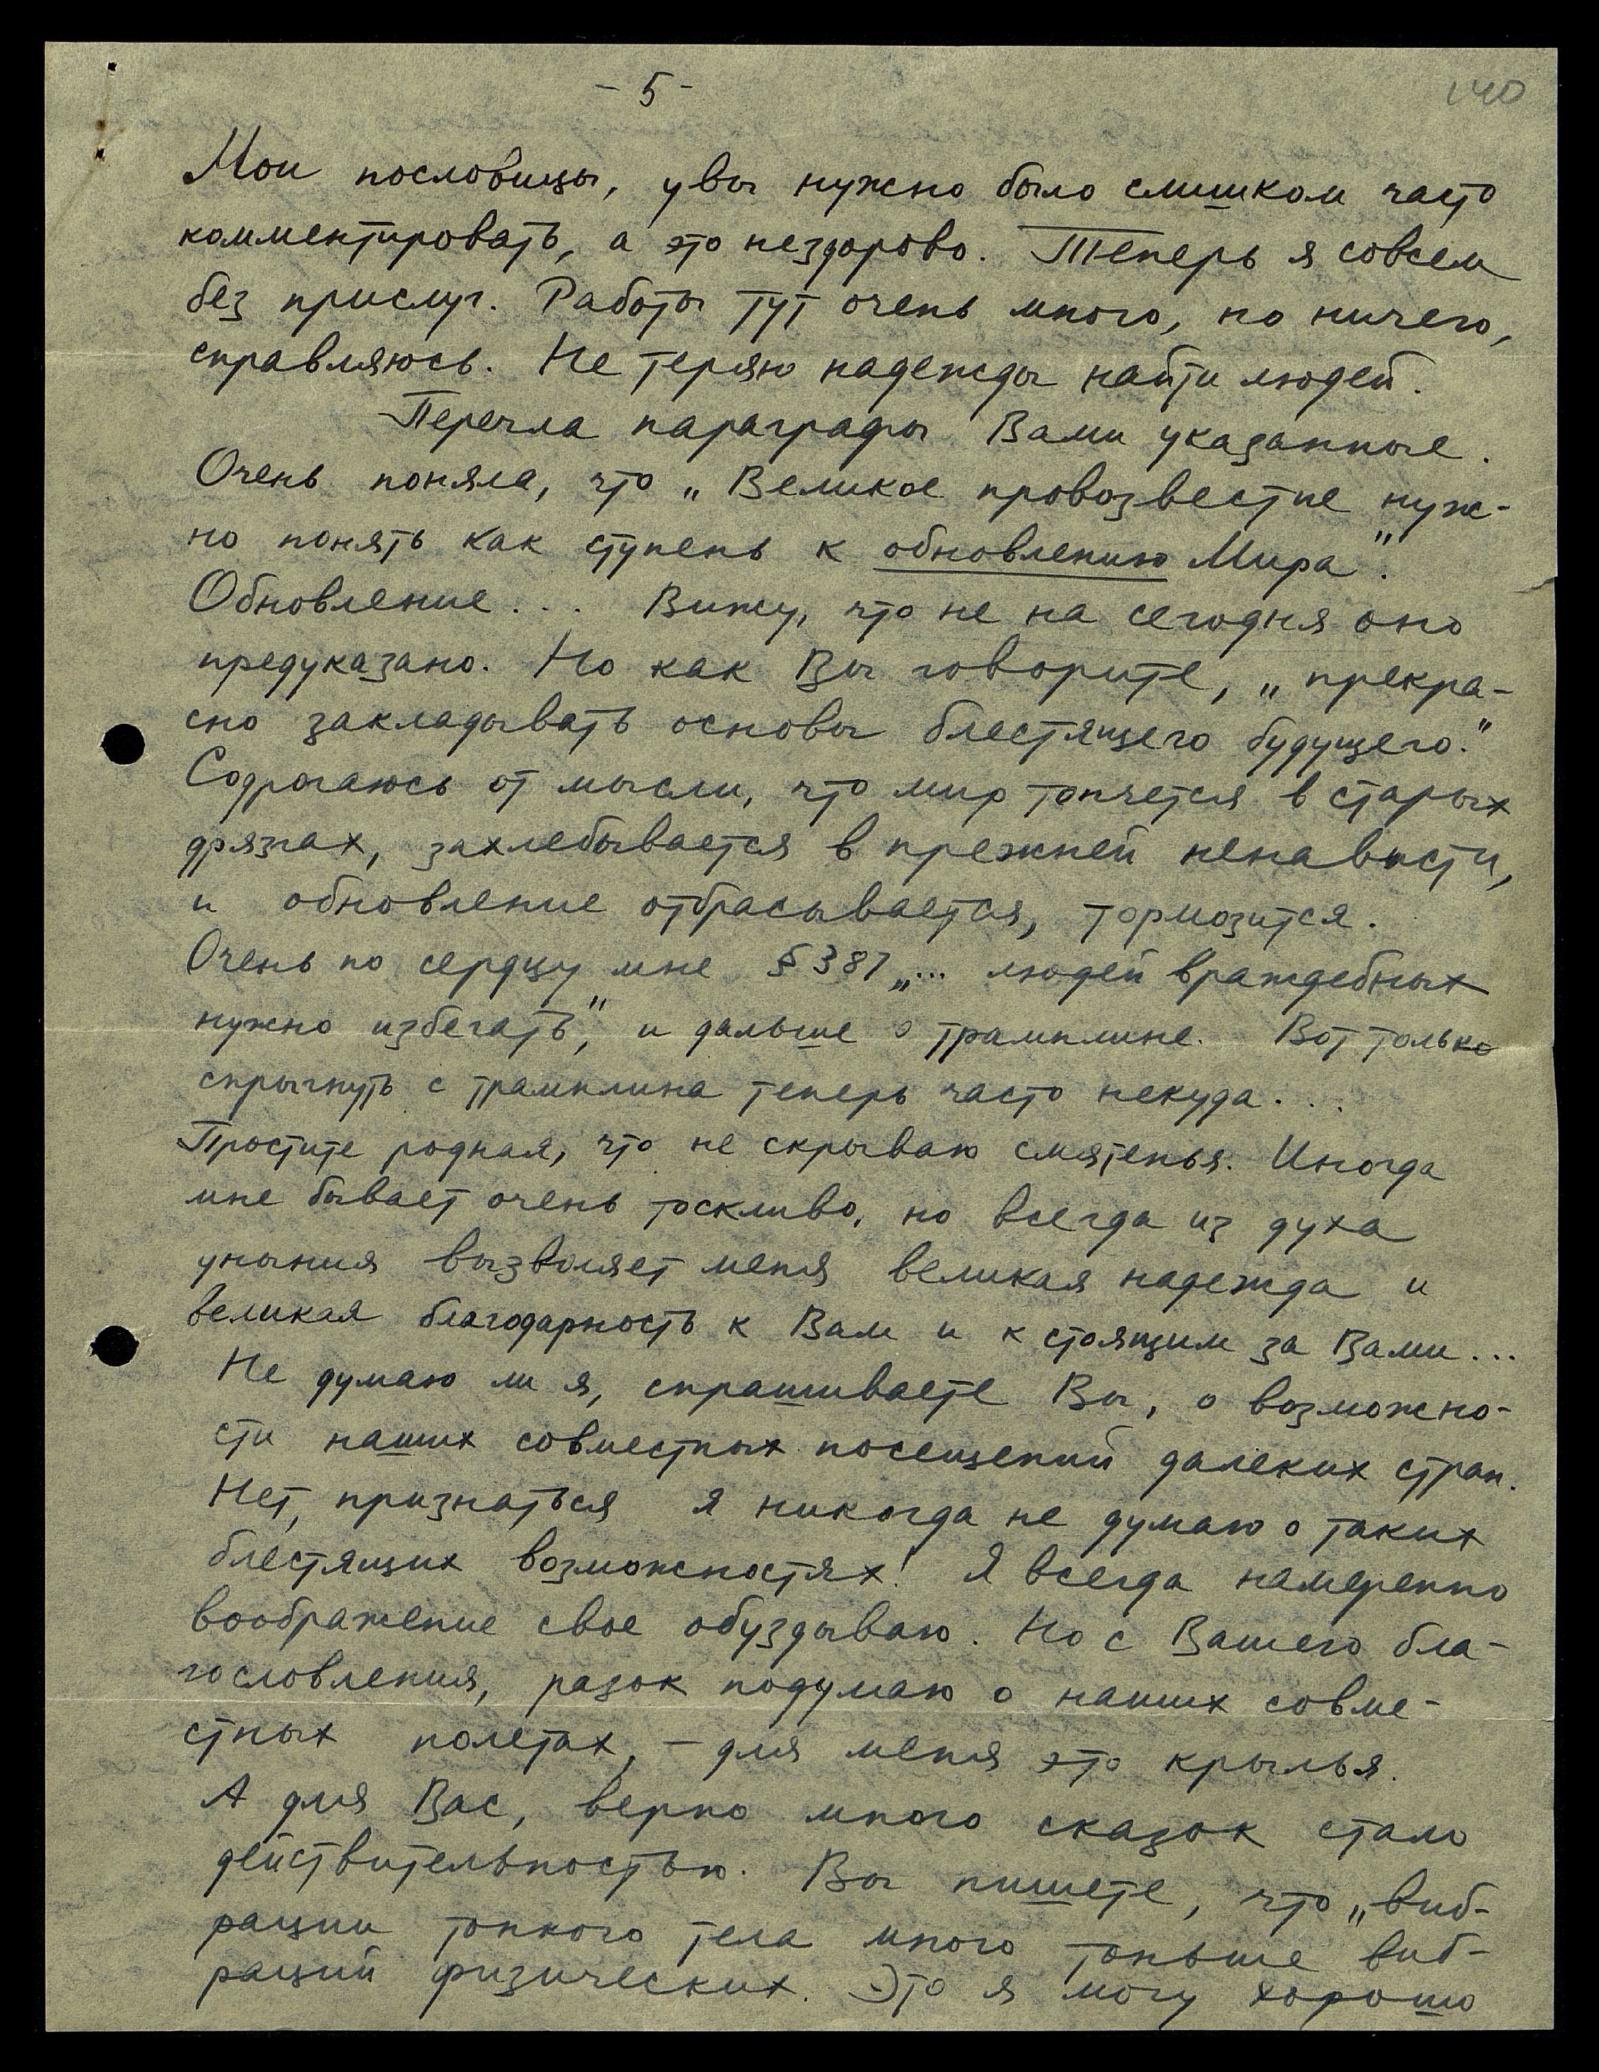 - 5 -
140
Мои пословицы, увы нужно было слишком часто
комментировать, а это нездорово. Теперь я совсем
без прислуг. Работы тут очень много, но ничего,
справляюсь. Не теряю надежды найти людей.
Перечла параграфы Вами указанные.
Очень поняла, что „Великое провозвестие нуж-
но понять как ступень к обновлению Мира".
Обновление... Вижу, что не на сегодня оно
предуказано. Но как Вы говорите, „прекра-
сно закладывать основы блестящего будущего."
Содрогаюсь от мысли, что мир топчется в старых
дрязгах, захлебывается в прежней ненависти,
и обновление отбрасывается, тормозится.
Очень по сердцу мне § 387 „... людей враждебных
нужно избегать", и дальше о трамплине. Вот только
спрыгнуть с трамплина теперь часто некуда...
Простите родная, что не скрываю смятенья. Иногда
мне бывает очень тоскливо, но всегда из духа
уныния вызволяет меня великая надежда и
великая благодарность к Вам и к стоящим за Вами...
Не думаю ли я, спрашиваете Вы, о возможно-
сти наших совместных посещений далеких стран.
Нет, признаться я никогда не думаю о таких
блестящих возможностях! Я всегда намеренно
воображение свое обуздываю. Но с Вашего бла-
гословления, разок подумаю о наших совме-
стных полетах, - для меня это крылья.
А для Вас, верно много сказок стало
действительностью. Вы пишете, что „виб-
рации тонкого тела много тоньше виб-
раций физических. Это я могу хорошо